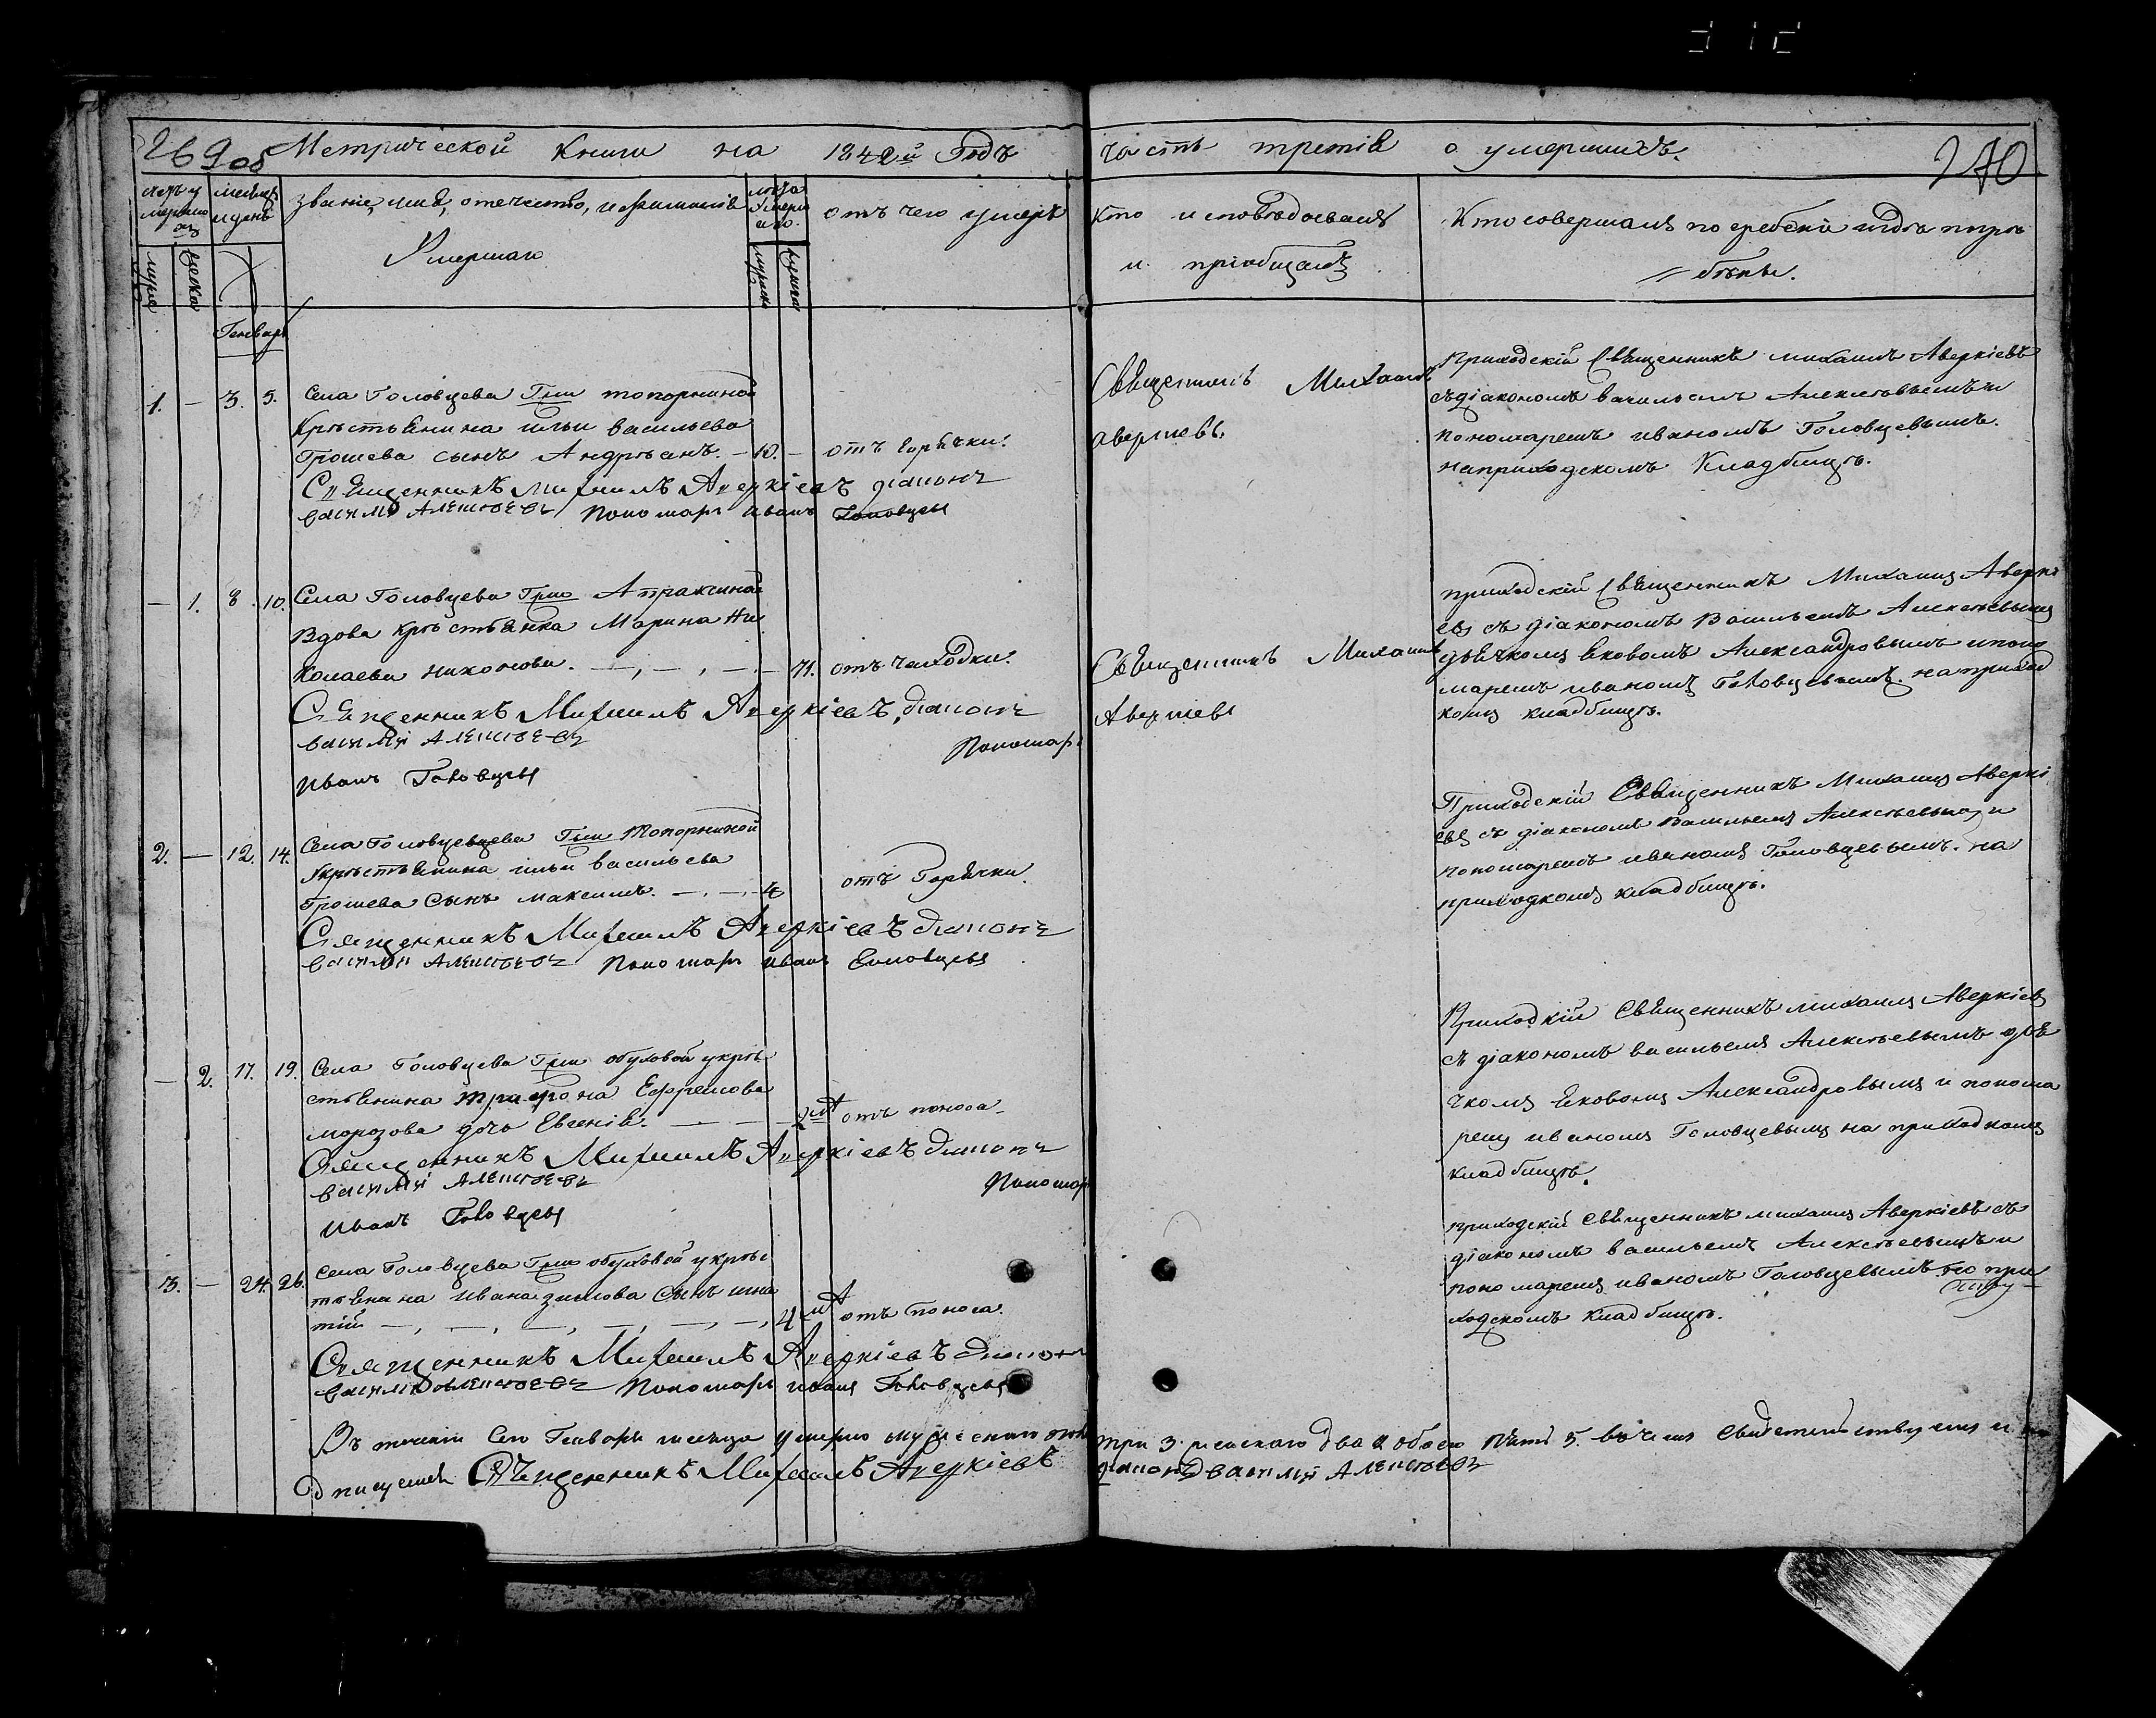 269 об Метрической Книги на 1842й Годъ
часть третія о умершихъ.
270
звание, имя, отечество, и фамилія
Умершаго
отъ чего умеръ
кто исповѣдовалъ
и пріобщалъ
Кто совершалъ погребеніе и гдѣ погре
бены.
Генварь
1. — 3. 5. Села Головцева Гжи топорниной
Крѣстьянина ильи васильева
Грошева сынъ Андрѣанъ. — 10. — отъ горячки.
Священникъ Михаилъ Аверкіевъ діаконъ
василій Алексѣевъ Пономарь иванъ Головцевъ
Священникъ Михаилъ
аверкіевъ.
Приходскій Священникъ михаилъ Аверкіевъ
съ діакономъ васильемъ Алексѣевымъ и
пономаремъ иваномъ Головцевымъ.
на приходскомъ Кладбищѣ.
— 1. 8. 10. Села Головцева Гжи Апраксиной
Вдова крѣстьянка Марина Ни
колаева никонова. — 71. отъ чаходки.
Священникъ Михаилъ Аверкіевъ, діаконъ
василій Алексѣевъ
Пономарь
иванъ Головцевъ
Священникъ Михаилъ
Аверкіевъ
приходскій Священникъ Михаилъ Аверкі
евъ съ діакономъ Васильемъ Алексѣевымъ
дьячкомъ Яковомъ Александровымъ и поно
маремъ иваномъ Головцевымъ. на приход
комъ кладбищѣ.
2. — 12. 14. Села Головцевцева Гжи Топорниной
Крѣстьянина ильи васильева
Грошева Сынъ максимъ. — 4 отъ Горячки.
Священникъ Михаилъ Аверкіевъ діаконъ
василій Алексѣевъ Пономарь иванъ Головцевъ
Приходскій Священникъ Михаилъ Аверкі
евъ съ діакономъ Васильемъ Алексѣевымъ и
пономаремъ иваномъ Головцевымъ. на
приходкомъ кладбищѣ.
— 2. 17. 19. Села Головцева Гжи обуховой у крѣ
стьянина трифона Ефремова
морозова дочь Евгенія. — отъ поноса.
Священникъ Михаилъ Аверкіевъ діаконъ
василій Алексѣевъ
Пономарь
иванъ Головцевъ
Приходкій Священникъ михаилъ Аверкіевъ
съ діакономъ васильемъ Алексѣевымъ дья
чкомъ Яковомъ Александровымъ и понома
ремъ иваномъ Головцевымъ на приходкомъ
кладбищѣ.
3. — 24. 26. Села Головцева Гжи обуховой у крѣс
тьянина Ивана зимова Сынъ игна
тій — 4 отъ поноса.
Священникъ Михаилъ Аверкіевъ діаконъ
василій Алексѣевъ Пономарь иванъ Головцевъ
приходскій священникъ михаилъ Аверкіевъ съ
діакономъ васильемъ Алексѣевымъ и
пономаремъ иваномъ Головцевымъ на при
ходскомъ кладбищѣ.
Въ теченіи Сего Генваря месяца умерло мужескаго пола три 3. женскаго два а обоего Пять 5. в чемъ свидетельствуемъ и по
дписуемся Священникъ Михаилъ Аверкіевъ діаконъ василій Алексѣевъ